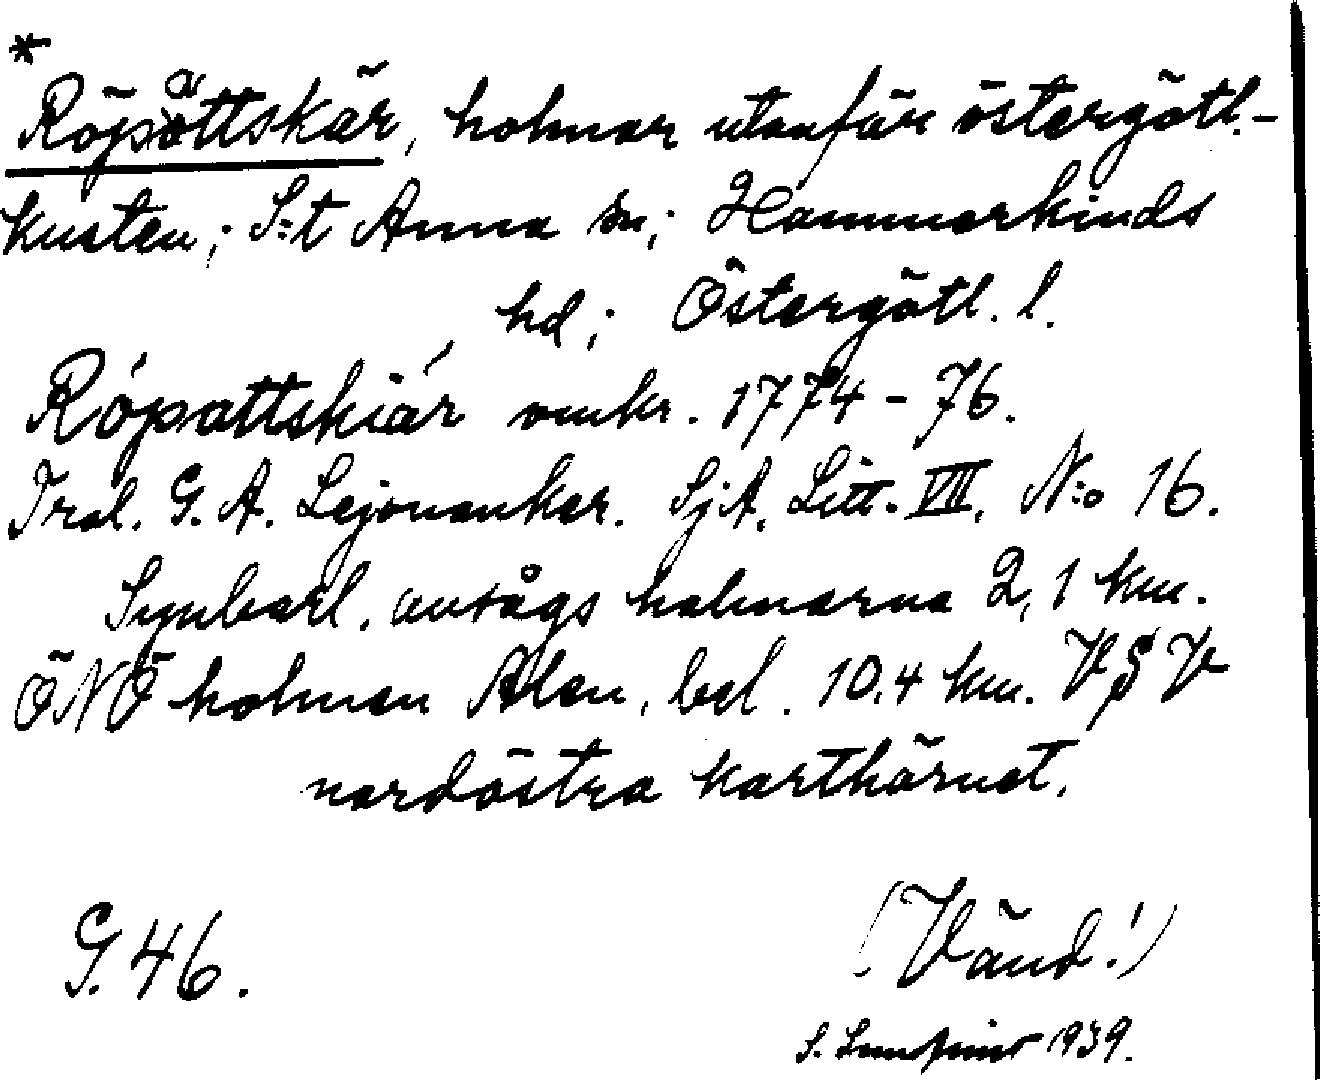 *
Röpåttskär, holmar utanför östergötl.-
kusten; S:t Anna sn; Hammarkinds
hd; Östergötl. l.
Rópattskiár omkr. 1774-76.
Trol. G. A. Lejonanker. SjA. Litt. VII. N:o 16.
Symboël. antågs holmarna 2,1 km.
ÖNÖ holmen Alen, bel. 10.4 km. VSV
nordöstra karthörnet.
G. 46.
(Vänd!)
S. 1939.